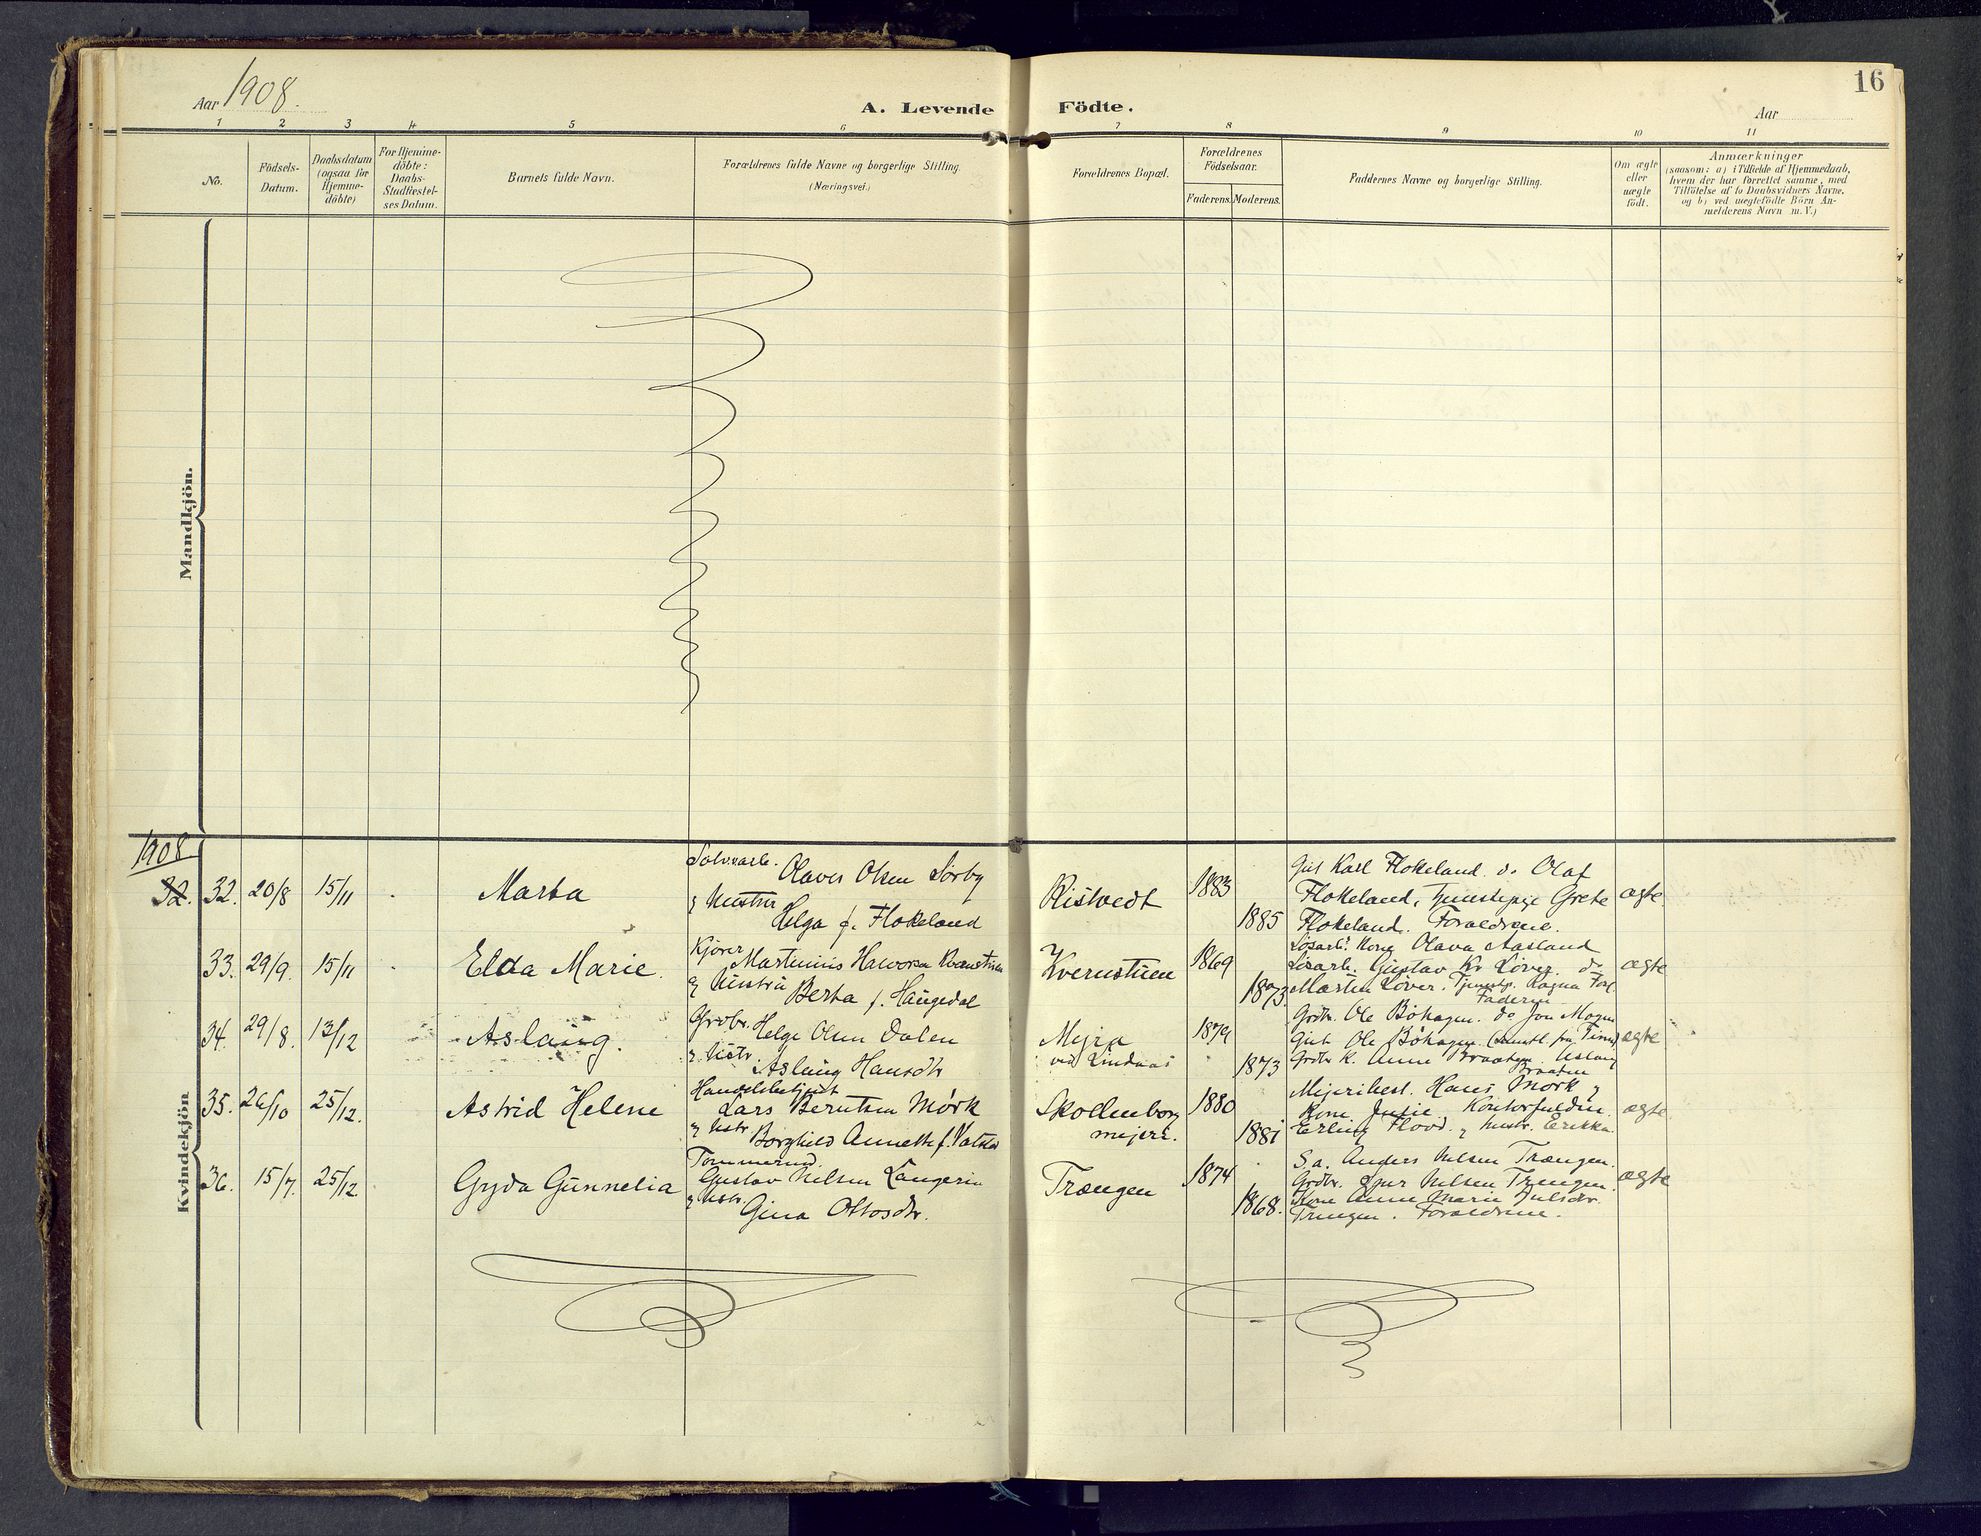 16
Aar 1908.
A. Levende Födte.
Aar
1 2 3 4 5 6 7 8 9 10 11
No.
Födsels-
Datum.
Daabsdatum
(ogsaa for
Hjemme-
döbte)
For Hjemme-
döbte:
Daabs-
Stadfestel-
ses Datum.
Barnets fulde Navn.
Forældrenes fulde Navne og borgerlige Stilling.
(Næringsvei.)
Forældrenes Bopæl.
Forældrenes
Födselsaar.
Faderens. Moderens.
Faddernes Navne og borgerlige Stilling.
Om ægte
eller
uægte
födt.
Anmærkninger
(saasom: a) i Tilfælde af Hjemmedaab,
hvem der har forrettet samme, med
Tilföielse af to Daabsvidners Navne,
og b) ved uægtefödte Börn An-
melderens Navn m. V.)
Mandkjön.
Kvindekjön
1908
32. 32. 20/8 15/11
Marta
Olaves Olsen Sörby
g Hustru
Helga f. Flokeland
Ristvedt
1883
1885
Gut Karl Flokeland. do Olaf
Flokeland, Tjenestepige Grete
Flokeland. Forældrene.
ægte
33. 29/9. 15/11
Elda Marie.
Kjörer
Martinius Halvorsen
g Hustru
Berta f. Haugedal
Kvernstuen
1869
1873
Kone Olava Aasland
Gustav Kr Löver. do
Martin Löver. Ragna
Faderen
ægte
34. 29/8. 13/12
Aslaug.
Grbr. Helge Olsen Dalen
g. Hstr.
Aslaug Hansdtr
Mejra
ved Lindaas
1879
1873
Grdbr. Ole Böhagen. do Jon Mogen
Gut Ole Böhagen
Grdbr K. Anne Braaten. Aslaug
Braaten
ægte
35. 26/10 25/12.
Astrid Helene
Handelsbetjent
Lars Berntsen Mörk
g Hstr. Borghild Annette f.
Skollenborg
mejeri.
1880
1881
Mejeribest. Hans Mörk g
Kone
Erling Flood. g Hustr. Erikka
ægte
36. 15/7. 25/12
Gyda Gunnelia
Tömmermd.
Gustav Nilsen Langerin
g Hstr.
Gina Ottosdtr.
Trængen
1874
1868.
S.a. Anders Nilsen Trængen.
Grdbr. Nilsen Trængen.
Kone Anne Marie Julsdtr
Trængen. Forældrene.
ægte